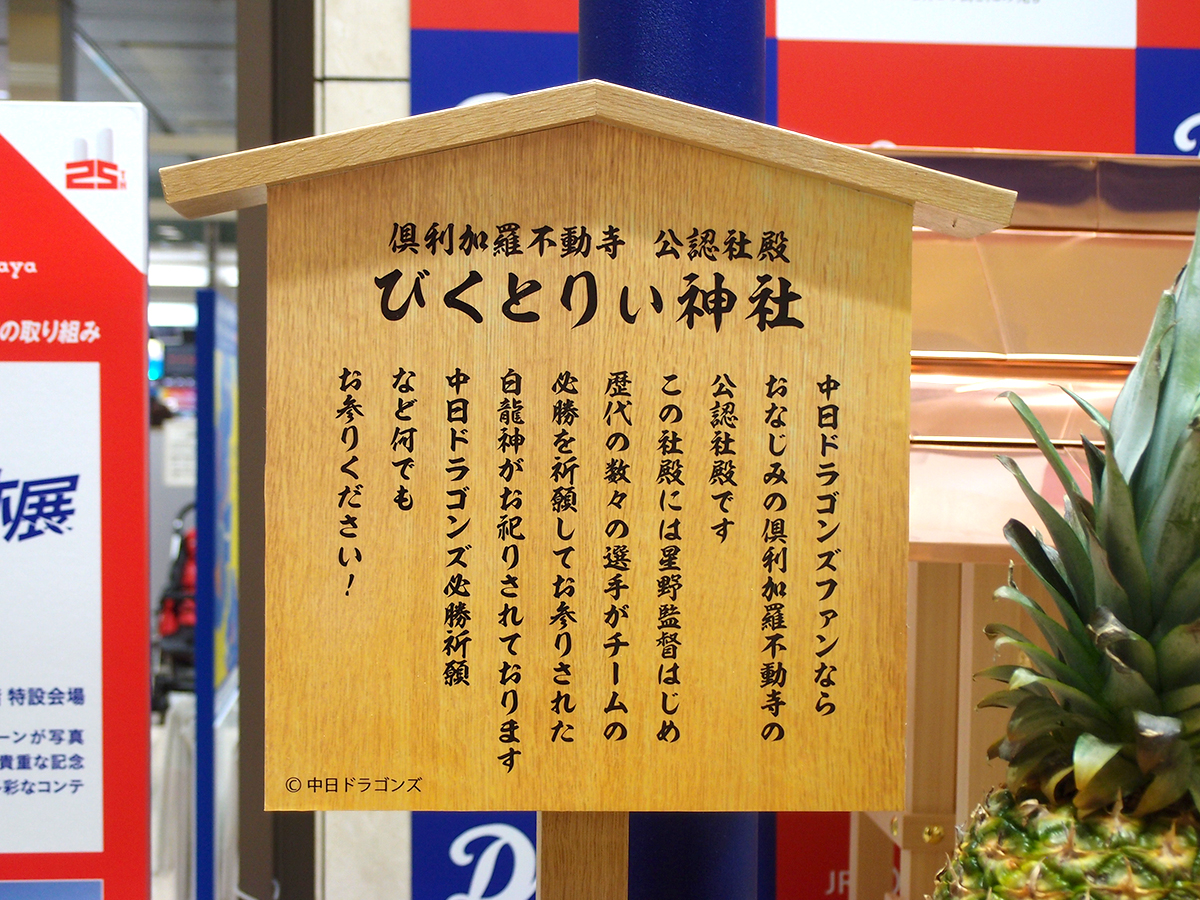 倶利加羅不動寺　公認社殿
びくとりぃ神社
中日ドラゴンズファンなら
おなじみの倶利加羅不動寺の
公認社殿です
この社殿には星野監督はじめ
歴代の数々の選手がチームの
必勝を祈願してお参りされた
白龍神がお祀りされております
中日ドラゴンズ必勝祈願
など何でも
お参りください！
© 中日ドラゴンズ
25TH
aya
の取り組み
展
特設会場
ーンが写真
貴重な記念
彩なコンテ
D
JR